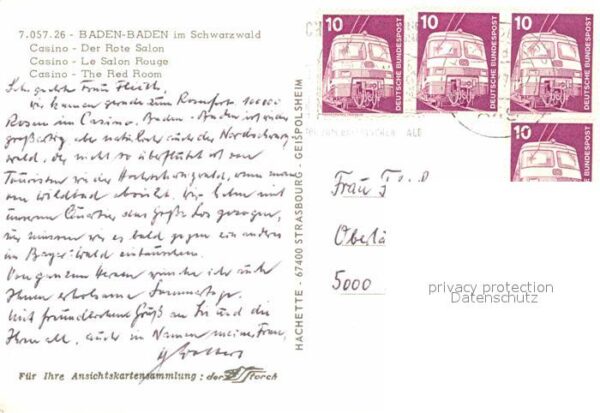 7.057.26 - BADEN-BADEN im Schwarzwald
Casino - Der Rote Salon
Casino - Le Salon Rouge
Casino - The Red Room
Sehr geehrte Frau
wir kamen gerade zum Rosenfest 100000
Rosen im Casino. Baden-Baden ist
großartig aber natürlich auch der Nordschwarz-
wald, der nicht so überflutet ist von
Touristen wie der Hochschwarzwald, wenn man
von Wildbad absieht. Wir haben mit
unserem Quartier das große Los gezogen,
nur müssen wir es bald gegen ein anderes
im Bayer. Wald eintauschen.
Von ganzem Herzen wünsche ich auch
Ihnen erholsame Sommertage.
Mit freundlichem Gruß an Sie und die
Ihren all, auch im Namen meiner Frau,
Für Ihre Ansichtskartensammlung: der Storch
HACHETTE - 67400 STRASBOURG - GEISPOLSHEIM
10 DEUTSCHE BUNDESPOST
10 DEUTSCHE BUNDESPOST
10 DEUTSCHE BUNDESPOST
10
Frau
5000
privacy protection
Datenschutz